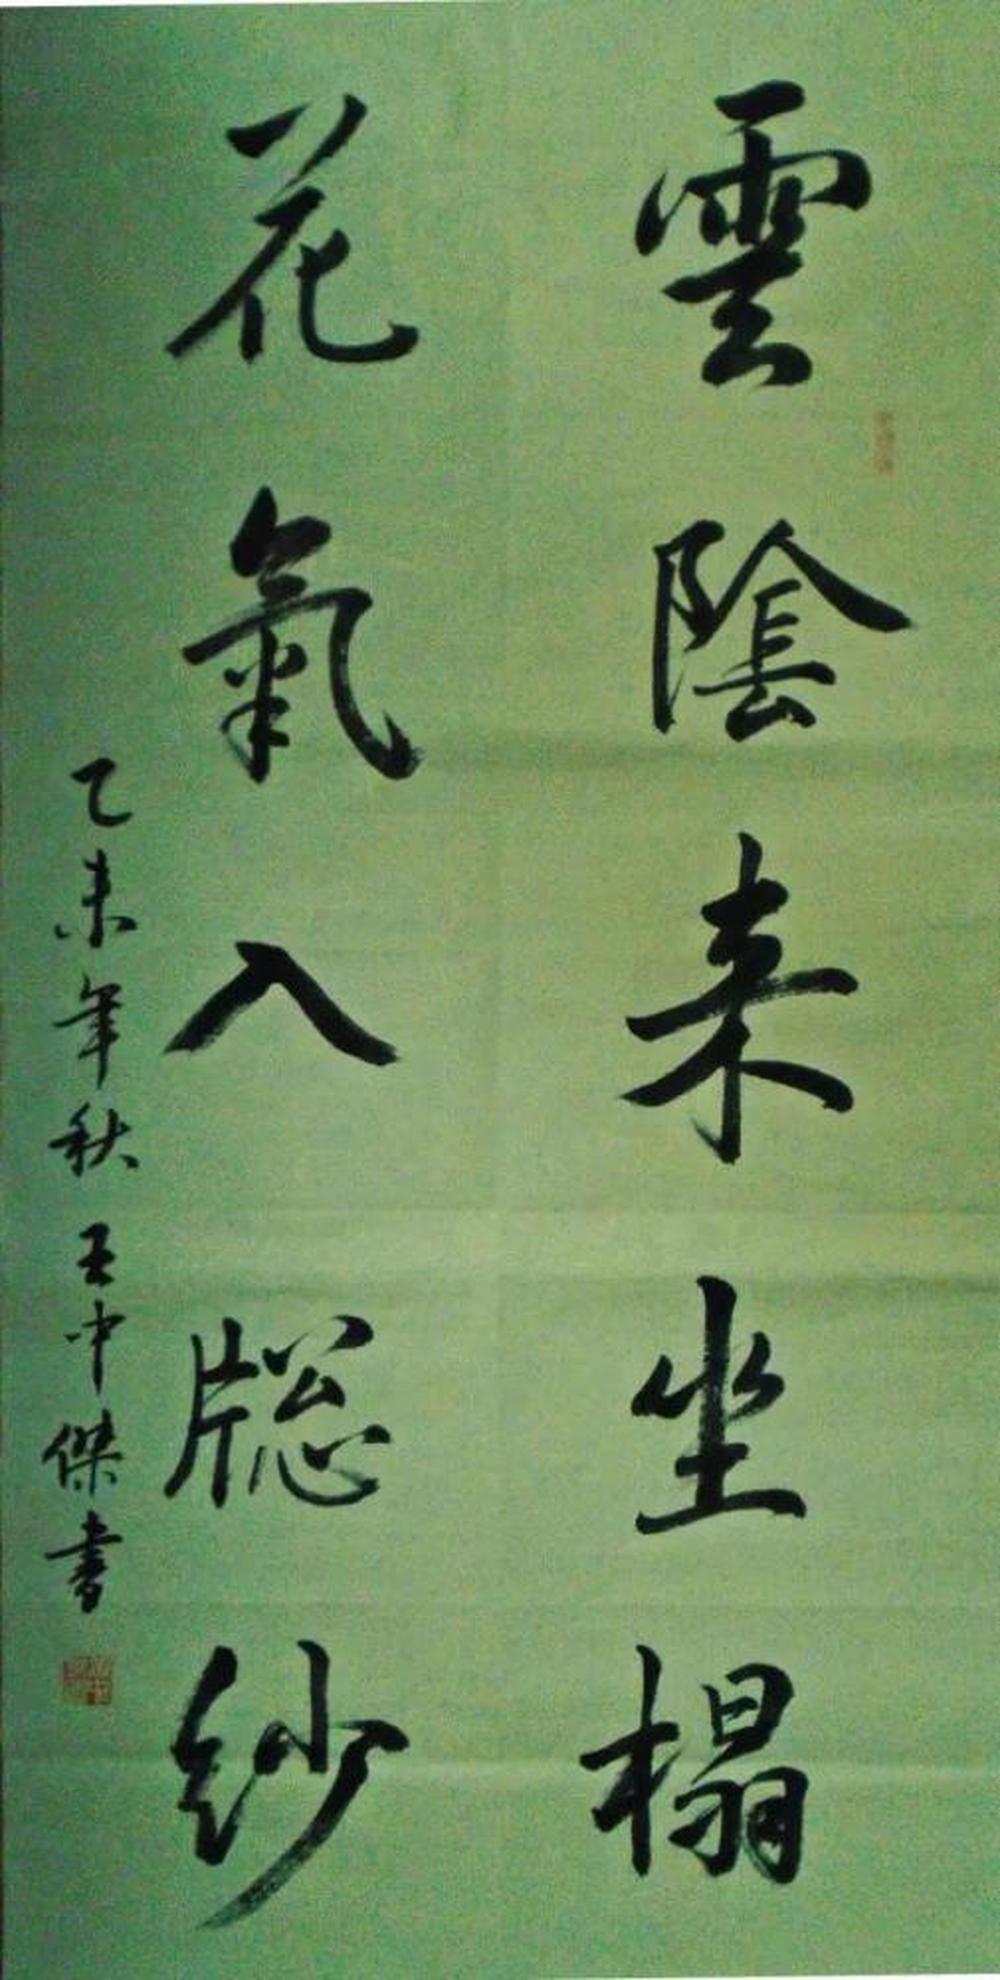 雲陰来坐榻
花氣入牕紗
乙未年秋 王中傑書